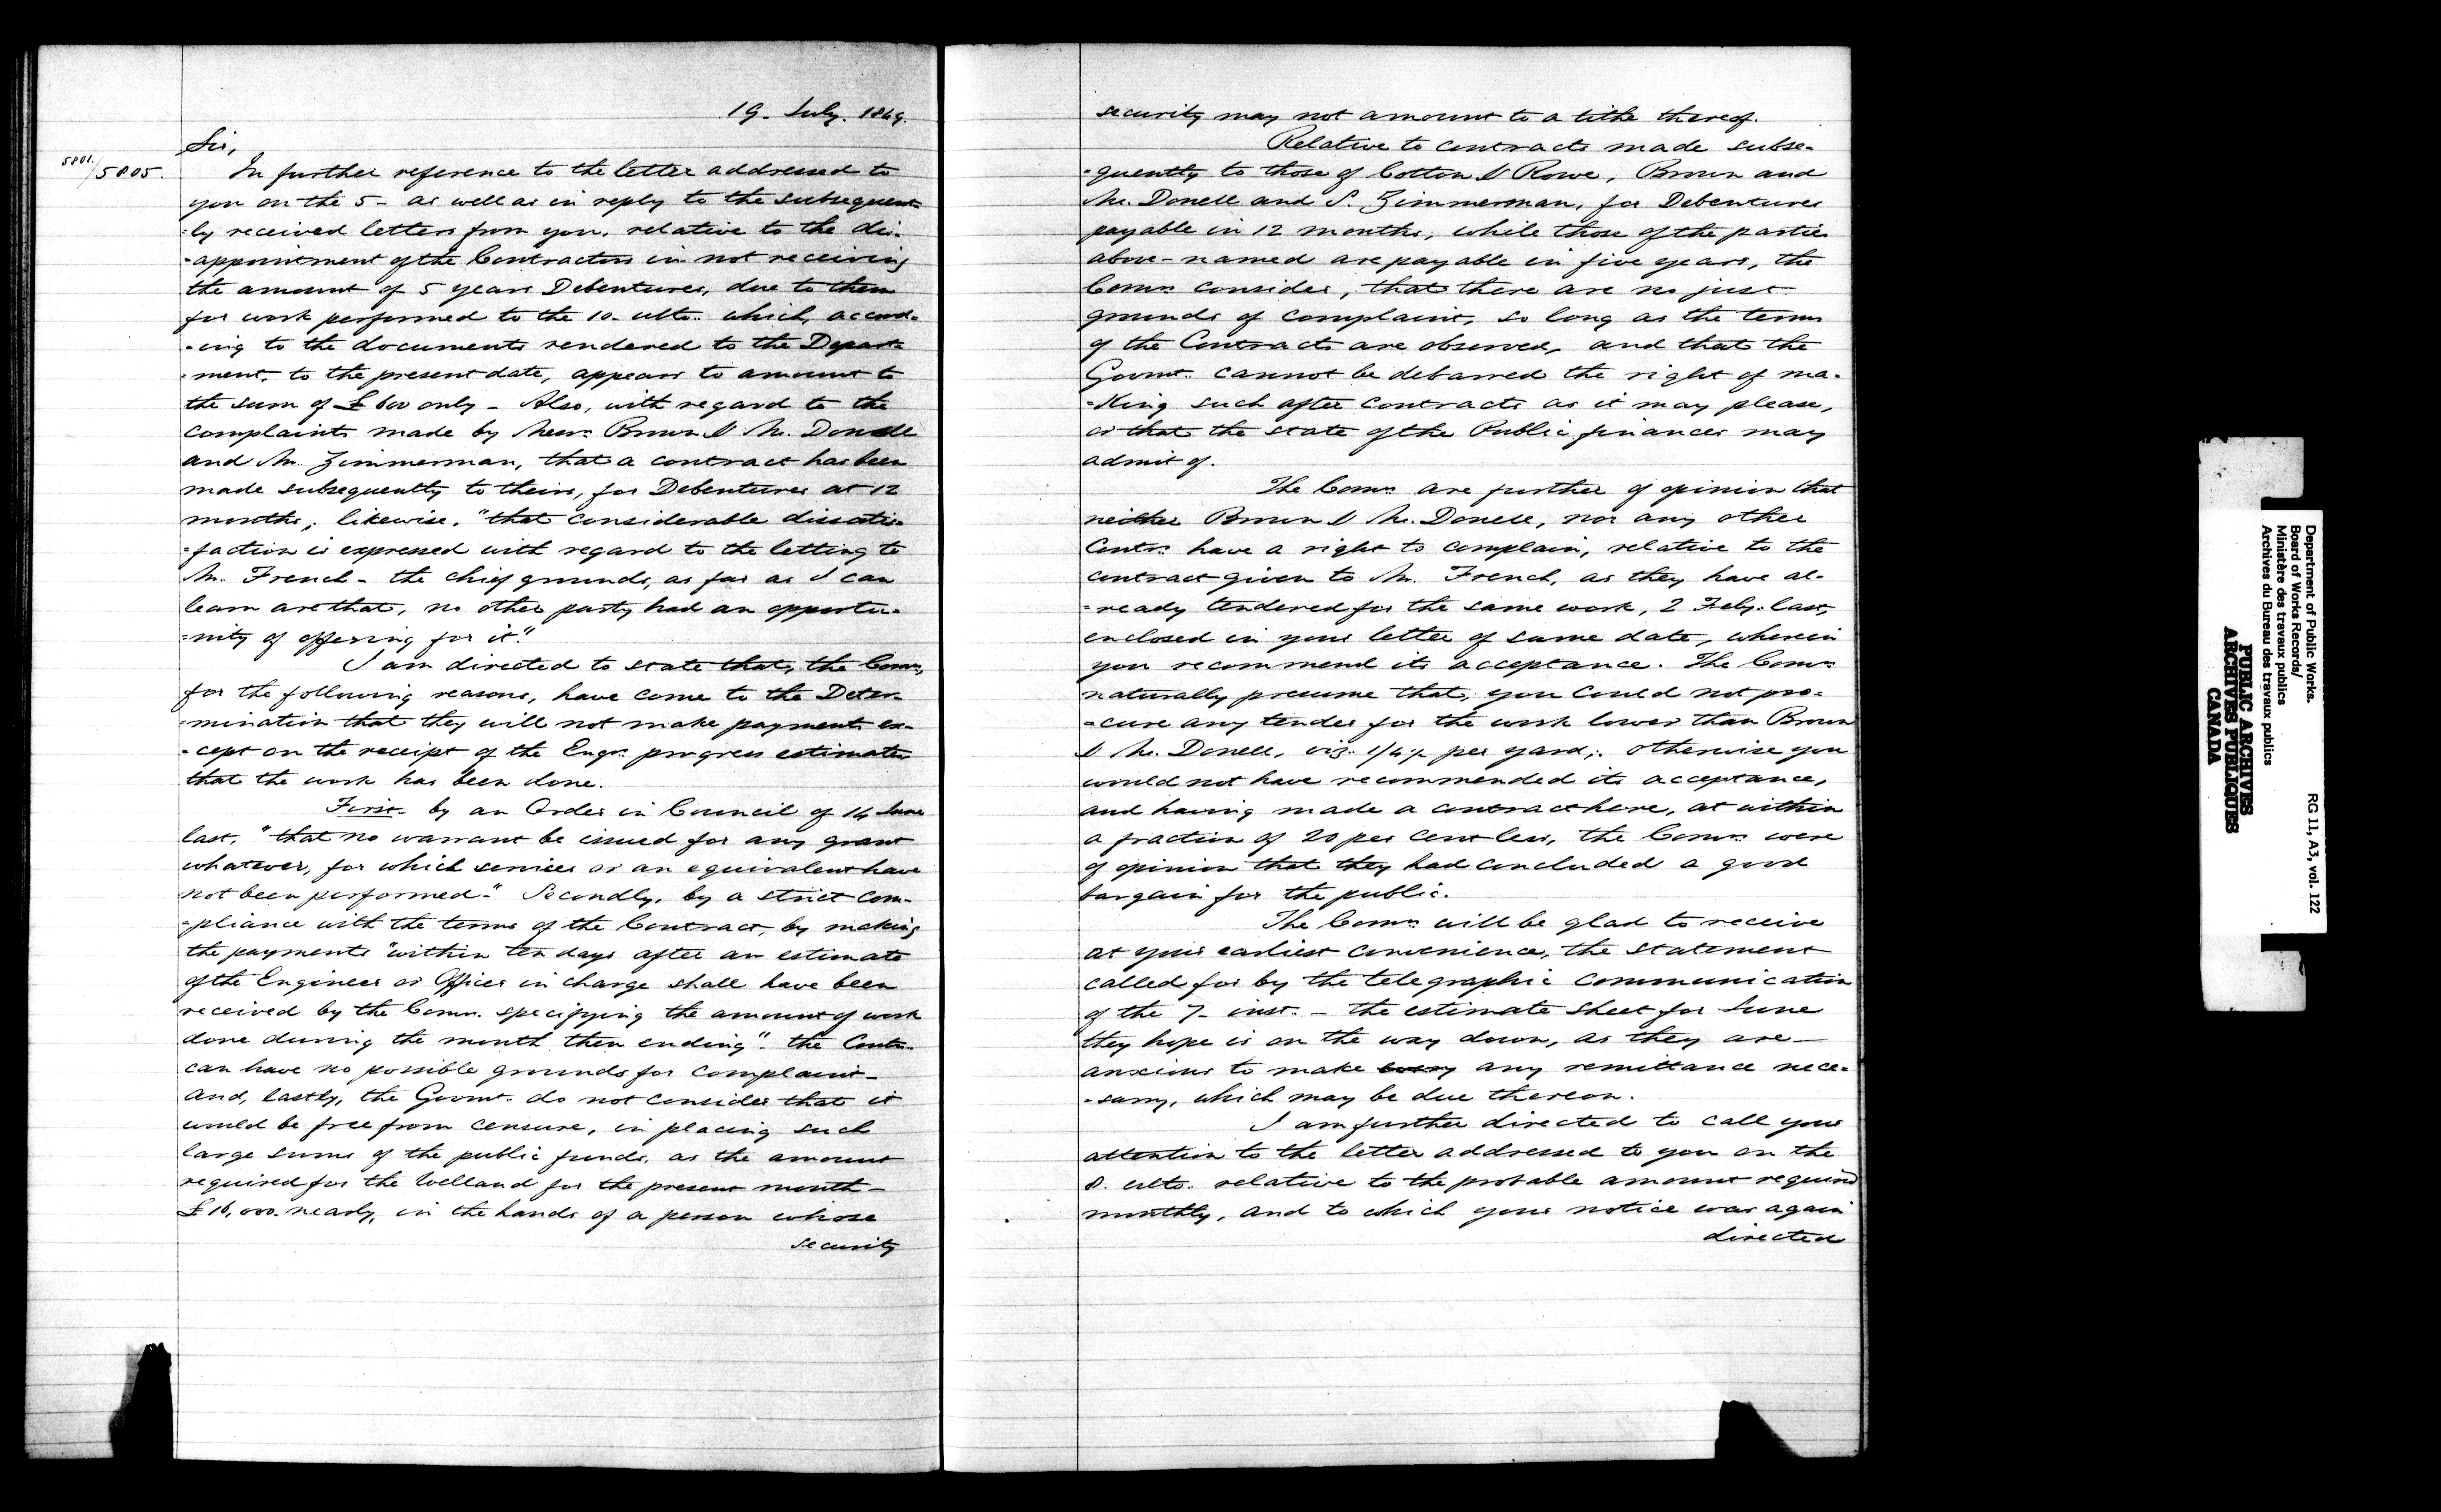 19. July. 1849.
Sir,
5801./5805.
In further reference to the letter addressed to
you on the 5- as well as in reply to the subsequent-
-ly received letters from you, relative to the dis-
-appointment of the Contractors in not receiving
the amount of 5 years Debentures, due to them
for work performed to the 10- ulto. which, accord-
-ing to the documents rendered to the Depart-
-ment, to the present date, appears to amount to
the sum of £600 only - Also, with regard to the
complaints made by Messrs Brown & McDonell
and Mr. Zimmerman, that a contract has been
made subsequently to theirs, for Debentures at 12
months; likewise, "that considerable dissatis-
-faction is expressed with regard to the letting to
Mr. French - the chief grounds, as far as I can
learn are that, no other party had an opportu-
-nity of offering for it."
I am directed to state that, the Comrs,
for the following reasons, have come to the Deter-
-mination that they will not make payments ex-
-cept on the receipt of the Engrs. progress estimates
that the work has been done.
First- by an Order in Council of 14 June
last, "that no warrant be issued for any grant
whatever, for which services or an equivalent have
not been performed." Secondly, by a strict com-
-pliance with the terms of the Contract, by making
the payments "within ten days after an estimate
of the Engineer or Officer in charge shall have been
received by the Comrs. specifying the amount of work
done during the month then ending". the Contrs.
can have no possible grounds for complaint-
And, lastly, the Govmt. do not consider that it
would be free from censure, in placing such
large sums of the public funds, as the amount
required for the Welland for the present month-
nearly, in the hands of a person whose
security
security may not amount to a tithe thereof.
Relative to contracts made subse-
-quently to those of Cotton & Rowe, Brown and
McDonell and S. Zimmerman, for Debentures
payable in 12 months, while those of the parties
above-named are payable in five years, the
Comrs. consider, that there are no just
grounds of complaint, so long as the terms
of the Contracts are observed, and that the
Govmt. cannot be debarred the right of ma-
-king such after contracts as it may please,
or that the state of the Public finances may
admit of.
The Comrs. are further of opinion that
neither Brown & McDonell, nor any other
Contrs. have a right to complain, relative to the
contract given to Mr. French, as they have al-
-ready tendered for the same work, 2 Feby. last,
enclosed in your letter of same date, wherein
you recommend its acceptance. The Comrs.
naturally presume that, you could not pro-
-cure any tender for the work lower than Brown
& McDonell, viz. per yard; otherwise you
would not have recommended its acceptance,
and having made a contract here, at within
a fraction of 20 per cent less, the Comrs. were
of opinion that they had concluded a good
bargain for the public.
The Comrs. will be glad to receive
at your earliest convenience, the statement
called for by the telegraphic communication
of the 7- inst. - the estimate sheet for June
they hope is on the way down, as they are-
anxious to make every any remittance nece-
-sary, which may be due thereon.
I am further directed to call your
attention to the letter addressed to you on the
8. ulto. relative to the probable amount required
monthly, and to which your notice was again
directed
Department of Public Works.
Board of Works Records/
Ministère des travaux publics
Archives du Bureau des travaux publics
RG 11, A3, vol. 122
PUBLIC ARCHIVES
ARCHIVES PUBLIQUES
CANADA